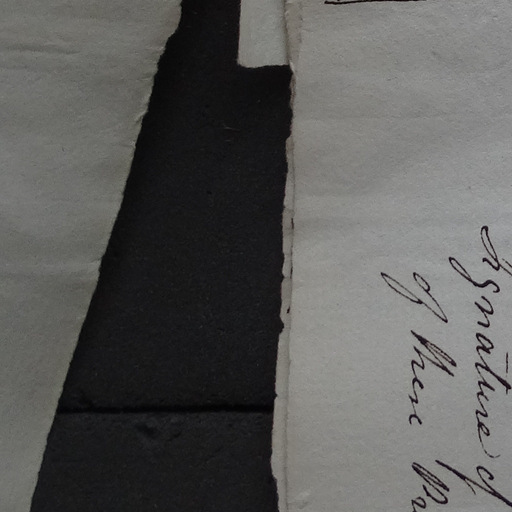 Signature of
of these